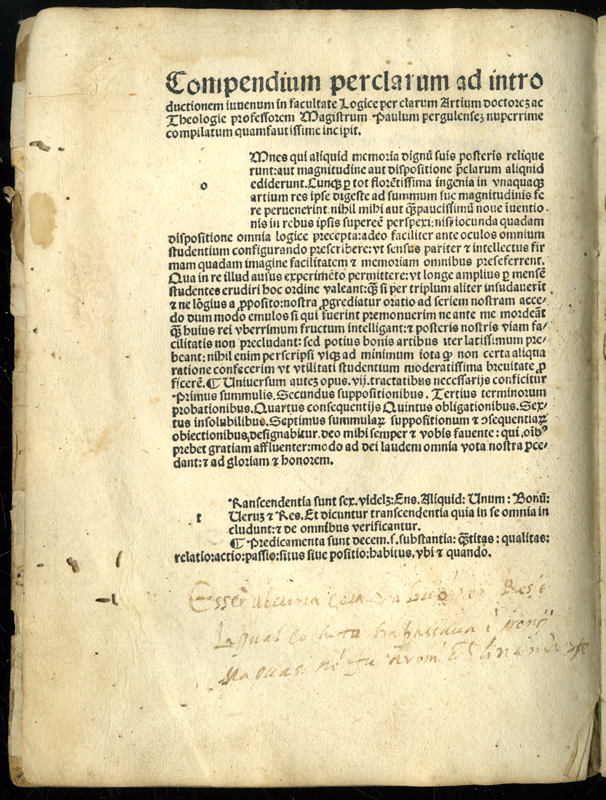 Compendium perclarum ad intro
ductionem iuuenum in facultate Logice per clarum Artium doctorez ac
Theologie professorem Magistrum Paulum pergulensez nuperrime
compilatum quamfautissime incipit.
Mnes qui aliquid memoria dignū suis posteris relique
runt: aut magnitudine aut dispositione p̄clarum aliquid
o
ediderunt. Cunqꝫ ꝑ tot florētissima ingenia in vnaquaqꝫ
artium res ipse digeste ad summum sue magnitudinis fe
re peruenerint. nihil mihi aut qꝫpaucissimū noue iuentio
nis in rebus ipsis supereē perspexi: nisi iocunda quadam
dispositione omnia logice precepta: adeo faciliter ante oculos omnium
studentium configurando prescribere: vt sensus pariter ⁊ intellectus fir
mam quadam imagine facilitatem ⁊ memoriam omnibus preseferrent.
Qua in re illud ausus experimēto permittere: vt longe amplius ꝑ mensē
studentes erudiri hoc ordine valeant: qꝫ si per triplum aliter insudauerīt
⁊ ne lōgius a ꝓposito: nostra ꝓgrediatur oratio ad seriem nostram acce
do dum modo emulos si qui fuerint premonuerim ne ante me mordeāt
qꝫ huius rei vberrimum fructum intelligant: ⁊ posteris nostris viam fa⸗
cilitatis non precludant: sed potius bonis artibus iter latissimum pre⸗
beant: nihil enim perscripsi viqꝫ ad minimum iota ꝙ non certa aliqua
ratione confecerim vt vtilitati studentium moderatissima breuitate ꝓ
ficerē. ¶ Uniuersum autez opus .vij. tractatibus necessarijs conficitur
Primus summulis. Secundus suppositionibus. Tertius terminorum
probationibus. Quartus consequentijs Quintus obligationibus. Sex⸗
tus insolubilibus. Septimus summulaꝝ suppositionum ⁊ ꝯsequentiaꝝ
obiectionibus, designabitur. deo mihi semper ⁊ vobis fauente: qui oīb⁹
prebet gratiam affluenter: modo ad dei laudem omnia vota nostra p̄ce⸗
dant: ⁊ ad gloriam ⁊ honorem.
Ranscendentia sunt sex. videlꝫ: Ens. Aliquid: Unum: Bonū:
t
Ueruz ⁊ Res. Et dicuntur transcendentia quia in se omnia in
cludunt: ⁊ de omnibus verificantur.
¶ Predicamenta sunt decem. s. substantia: qꝫtitas: qualitas:
relatio: actio: passio: situs siue positio: habitus. vbi ⁊ quando.